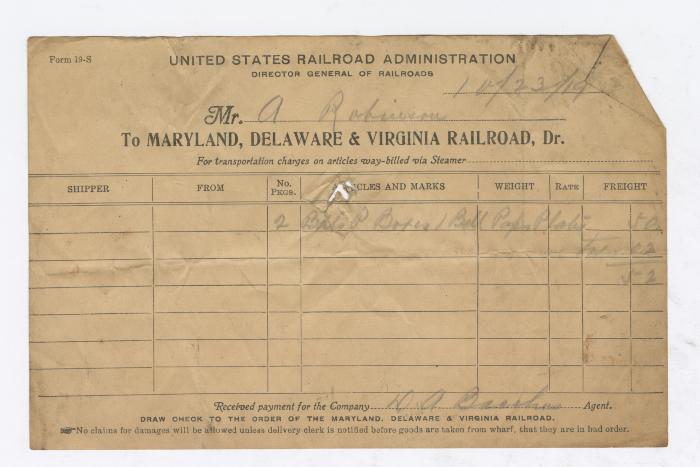 Form 19-S
UNITED STATES RAILROAD ADMINISTRATION
DIRECTOR GENERAL OF RAILROADS
10/23/19
Mr. A Robinson
To MARYLAND, DELAWARE & VIRGINIA RAILROAD, Dr.
For transportation charges on articles way-billed via Steamer
SHIPPER FROM No. PKGS. ICLES AND MARKS WEIGHT RATE FREIGHT
2 Bdls P Boxes 1 Bdl Paper Plates 50
02
52
Received payment for the Company Agent.
DRAW CHECK TO THE ORDER OF THE MARYLAND, DELAWARE & VIRGINIA RAILROAD.
☞No claims for damages will be allowed unless delivery clerk is notified before goods are taken from wharf, that they are in bad order.